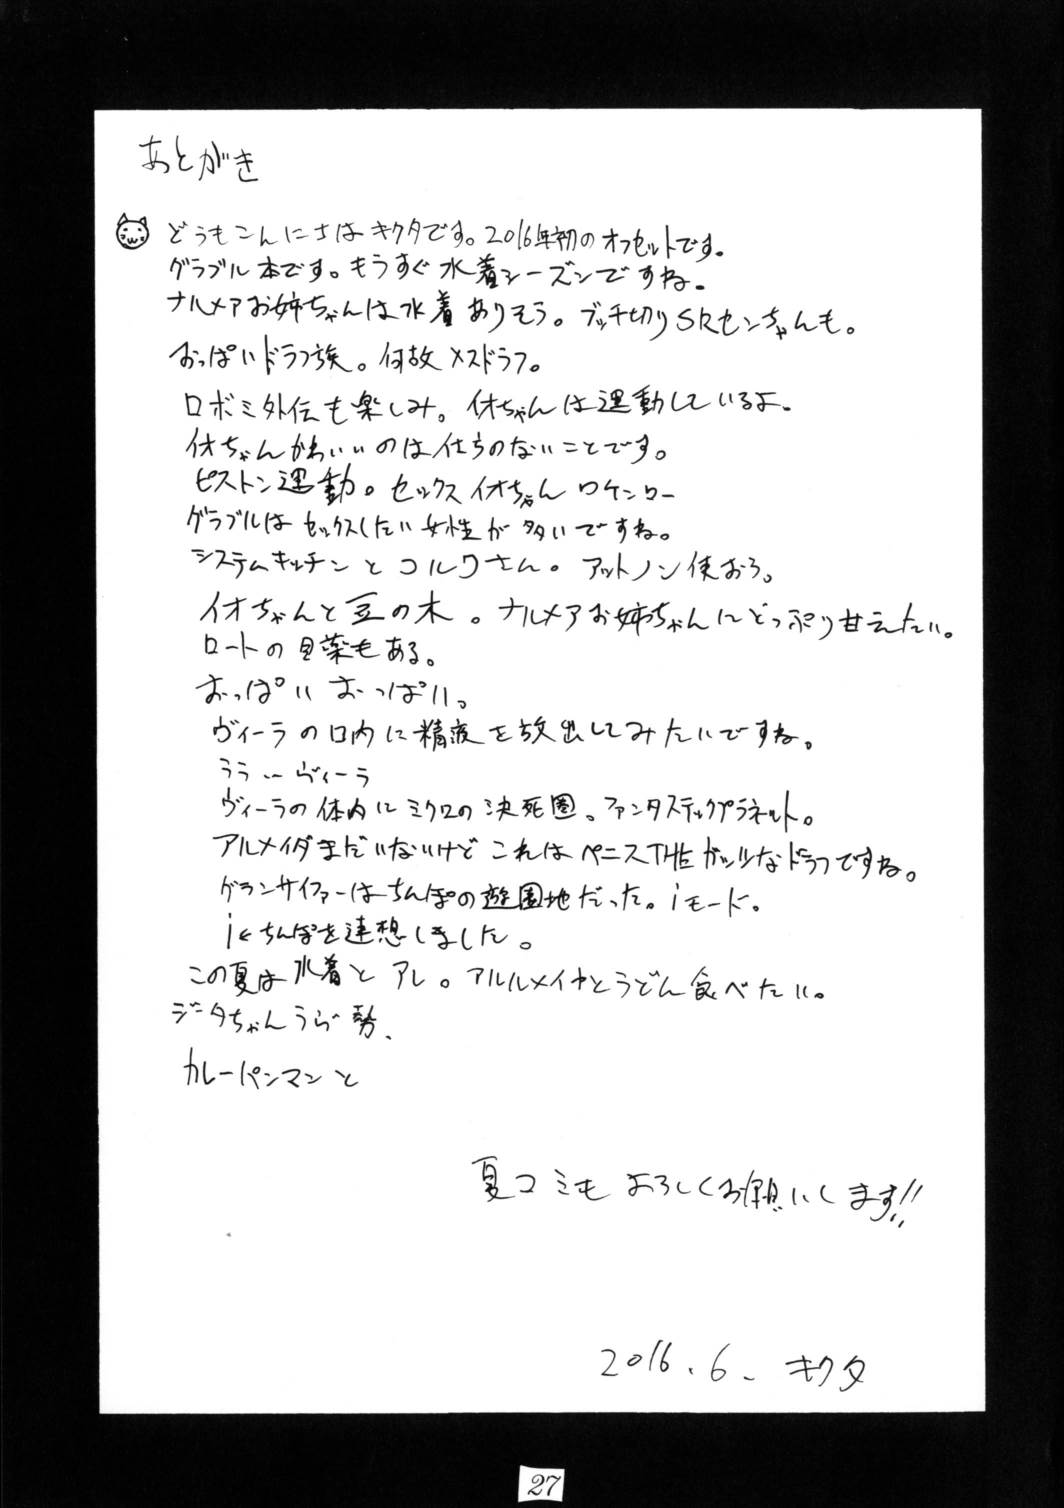 あとがき
どうもこんにちはキクタです。2016年初のオフセットです。
グラブル本です。もうすぐ水着シーズンですね。
ナルメアお姉ちゃんは水着ありそう。ブッチ切りSRセンちゃんも。
おっぱいドラフ族。何故メスドラフ。
ロボミ外伝も楽しみ。イオちゃんは運動しているよ。
イオちゃんかわいいのは仕方のないことです。
ピストン運動。セックスイオちゃん ロケンロー
グラブルはセックスしたい女性が多いですね。
システムキッチンとコルワさん。アットノン使おう。
イオちゃんと豆の木。ナルメアお姉ちゃんにどっぷり甘えたい。
ロートの目薬もある。
おっぱい おっぱい。
ヴィーラの口内に精液を放出してみたいですね。
うう…ヴィーラ
ヴィーラの体内にミクロの決死圏。ファンタスティックプラネット。
アルメイダまだいないけどこれはペニスTHEガッツなドラフですね。
グランサイファーはちんぽの遊園地だった。iモード。
i←ちんぽを連想しました。
この夏は水着とアレ。アルルメイヤとうどん食べたい。
ジータちゃんうら 勢、
カレーパンマンと
夏コミもよろしくお願いします!!
2016.6. キクタ
27